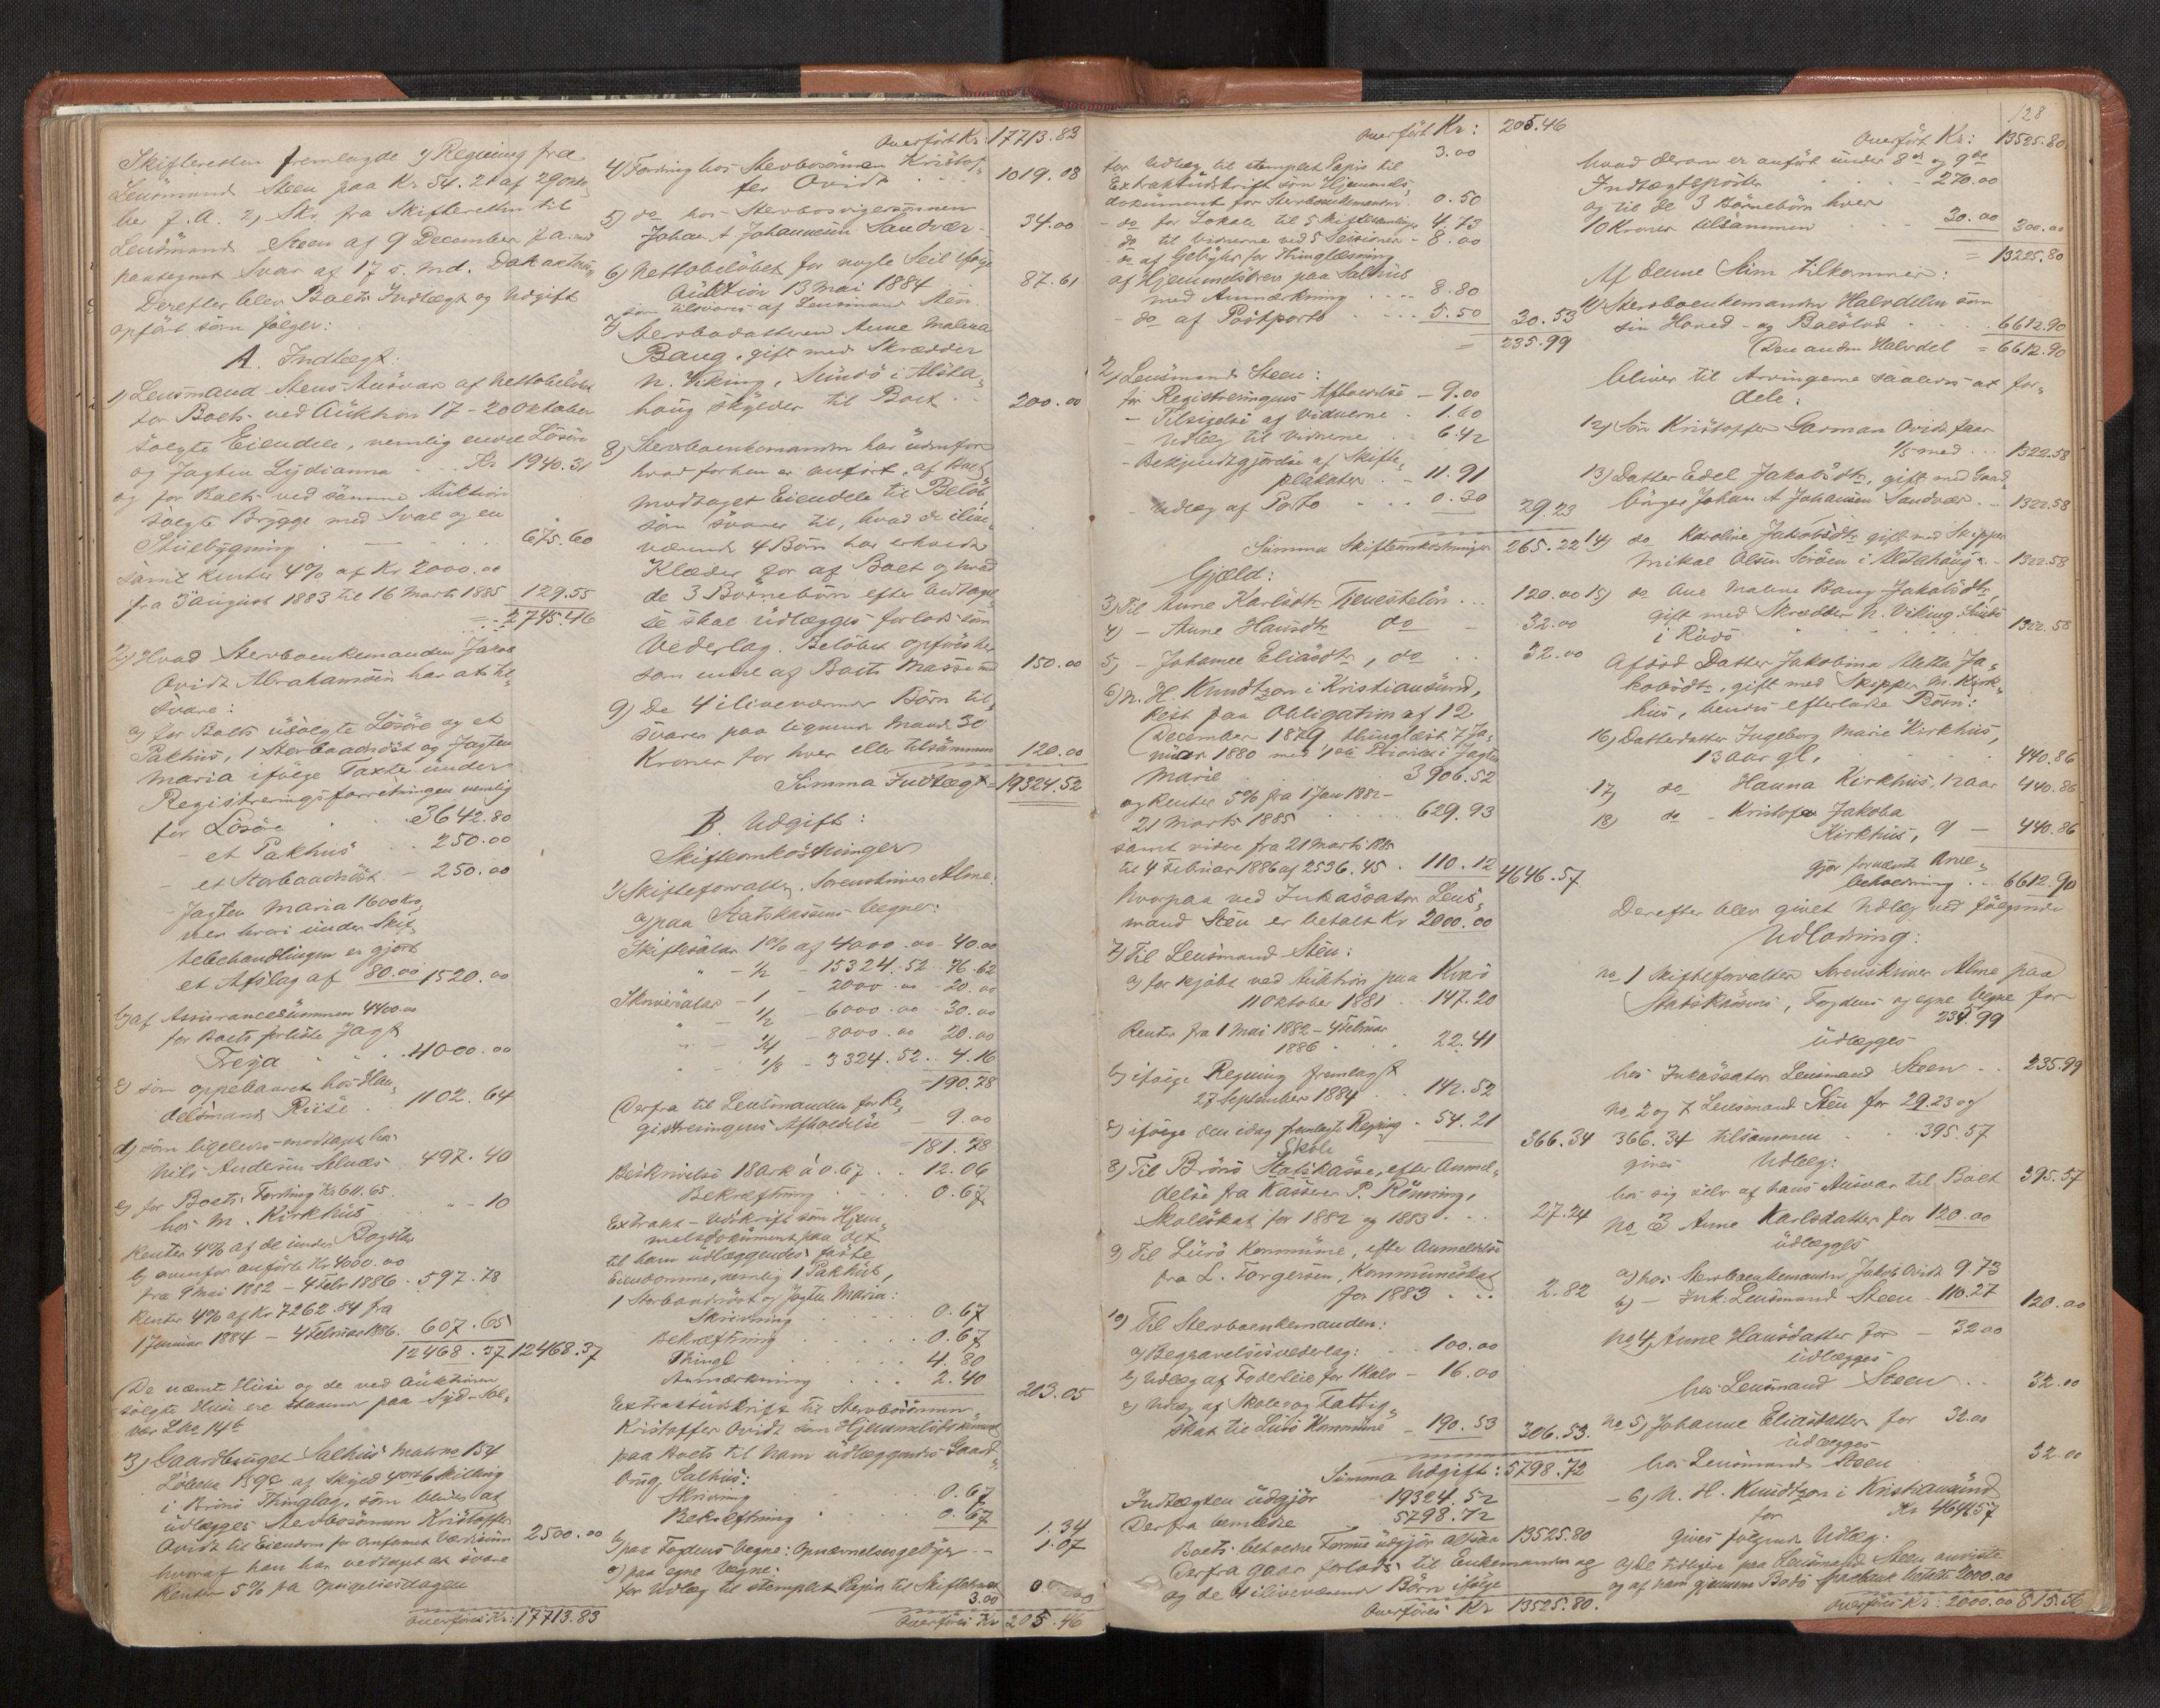 Skifteretten fremlagde 1) Regning fra
Lensmand Steen paa Kr 54.21 af 29 Okto-
ber f.A. 2) Skr. fra Skifteretten til
Lensmand Steen af 9 December f.A. med
paategnet Svar af 17 s. Md.
Derefter blev Boets Indtægt og Udgift
opført som følger:
A. Indtægt:
1) Lensmand Steens Ansvar af Nettobeløbet
for Boets ved Auktion 17-20 Oktober
solgte Eiendele, nemlig endel Løsøre
og Jagten Lydianna . . Kr 1940.31
og for Boets ved samme Auktion
solgte Brygge med Sval og en
Stuebygning . . . 675.60
samt Renter 4% af Kr 2000.00
fra 3 August 1883 til 16 Marts 1885 129.55
= 2745.46
2) Hvad Sterboenkemanden Jakob
Ovidt Abrahamsen har at til-
svare:
a) for Boets usolgte Løsøre og et
Pakhus, 1 Storbaadnøst og Jagten
Maria ifølge Taxter under
Registreringsforretningen nemlig
for Løsøre . . 3642.80
- et Pakhus . . 250.00
- et Storbaadnøst - 250.00
- Jagten Maria 1600 Kr,
men hvori under Skif-
tebehandlingen er gjort
et Afslag af 80.00 1520.00
b) af Assurancesummen 4400.00
for Boets forliste Jagt
Freya . . . 4000.00
c) som oppebaaret hos Han-
delsmand Riise . 1102.64
d) som ligeledes modtaget hos
Nils Andersen Selnæs 497.40
e) for Boets Fordring Kr 611.65
hos M. Kirkhus . . " - 10
Renter 4% af de under Bogstav
b ovenfor anførte Kr 4000.00
fra 9 Mai 1882 - 4 Febr 1886 . 597.78
Renter 4% af Kr 7262.84 fra
1 Januar 1884 - 4 Februar 1886. 607.65
12468.37 12468.37
De nævnte Huse og de ved Auktionen
solgte Huse ere staaende paa Syd-Sol-
vær Lno 14b
3) Gaardbruget Salhus Matrno 154
Løbeno 159c af Skyld 4 ort 6 Skilling
i Brønø Thinglag, som bliver at
udlægges Sterbosønnen Kristoffer
Ovidt til Eiendom for omforenet Værdisum 2500.00
hvoraf han har vedtaget at svare
Renter 5% fra Opsigelsesdagen
Overføres Kr: 17713.83
Overført Kr: 17713.83
4) Fordring hos Sterbosønnen Kristof-
fer Ovidt . . . 1019.08
5) do hos Sterbosvigersønnen
Johan A Johannesen Sandvær - 34.00
6) Nettobeløbet for nogle Seil ifølge
Auktion 13 Mai 1884 . . 87.61
som tilsvares af Lensmand Steen.
7) Sterbodatteren Anne Malena
Bang, gift med Skrædder
N. Viking, Sundø i Alsta-
houg skylder til Boet . . 200.00
8) Sterboenkemanden har udenfor
hvad forhen er anført, af Boet
modtaget Eiendele til Beløb,
som svarer til, hvad de ilive-
værende 4 Børn har erholdt
Klæder for af Boet og hvad
de 3 Børnebørn efter Vedtagel-
se skal udlægges forlods som
Vederlag. Beløbet opføres her
som endel af Boets Masse med 150.00
9) De 4 ilivevær ende Børn til-
svarer paa lignende Maade 30
Kroner for hver eller tilsammen 120.00
Summa Indtægt = 19324.52
B. Udgift:
Skifteomkostninger
1) Skifteforvalter, Sorenskriver Alme:
a) paa Statskassens Vegne:
Skiftesalær 1% af 4000.00 - 40.00
" - 1/2 - 15324.52 - 76.62
Skriversalær - 1 - 2000.00 - 20.00
1/2 - 6000.00 - 30.00
" - 1/4 - 8000.00 20.00
" - 1/8 - 3324.52 . 4.16
= 190.78
Derfra til Lensmanden for Re-
gistreringens Afholdelse - 9.00
= 181.78
Beskrivelse 18 ark à 0.67 . . 12.06
Bekræftning . . . 0.67
Extrakt-Udskrift som Hjem-
melsdokument paa det
til ham udlæggendes faste
Eiendomme, nemlig 1 Pakhus,
1 Storbaadnøst og Jagten Maria:
Skrivning . . . 0.67
Bekræftning . . . 0.67
Thingl . . . 4.80
Anmærkning . . . 2.40 203.05
Extraktudskrift til Sterbosønnen
Kristoffer Ovidt som Hjemmelsdokument
paa Boets til ham udlæggendes Gaard-
brug Salhus:
Skrivning . . . 0.67
Bekræftning . . . 0.67 1.34
b) paa Fogdens Vegne: Opnævnelsesgebyr - 1.07
c) paa egne Vegne:
for Udlæg til stemplet Papir til
3.00
Overføres Kr 205.46
128
Overført Kr: 205.46
for Udlæg til stemplet Papir til 3.00
Extraktudskrift som Hjemmels-
dokument for Sterboenkemanden . 0.50
- do for Lokale til 5 Skiftesamlinger 4.73
- do til Vidnerne ved 5 Sessioner - 8.00
- do af Gebyhr for Thinglæsning
af Hjemmelsbrev paa Salhus
med Anmærkning . . . 8.80
- do af Postporto . . . 5.50 30.53
= 235.99
2) Lensmand Steen:
for Registreringens Afholdelse - 9.00
- Tilsigelse af Vidnerne . 1.60
- Udlæg til Vidnerne . . 6.42
- Bekjendtgjørelse af Skifte-
plakater . - 11.91
- Udlæg af Porto . . . 0.30 29.23
Summa Skifteomkostninger 265.22
Gjæld:
3) Til Anne Karlsdtr Tjenesteløn . . . 120.00
4) - Anne Hansdtr do - 32.00
5) - Johanne Eliasdtr, do . . 32.00
6) N. H. Knudtzon i Kristiansund,
Rest paa Obligation af 12
December 1879 thinglæst 7 Ja-
nuar 1880 med 1ste Prioritet i Jagten
Marie . . . 3906.52
og Renter 5% fra 1 Jan 1882 -
21 Marts 1885 . . . 629.93
samt videre fra 21 Marts 1885
til 4 Februar 1886 af 2536.45 . 110.12 4646.57
hvorpaa ved Inkassator Lens-
mand Steen er betalt Kr 2000.00
7) Til Lensmand Steen:
a) for kjøbt ved Auktion paa Kvarø
11 Oktober 1881 . . 147.20
Renter fra 1 Mai 1882 - 4 Februar
1886 . . . 22.41
b) ifølge Regning fremlagt
27 September 1884 . . 142.52
c) ifølge den idag fremlagte Regning . 54.21 366.34
8) Til Brønø Skolekasse, efter Anmel-
delse fra Kasserer P. Rønning,
Skoleskat for 1882 og 1883 . . . 27.24
9) Til Lurø Kommune, efter Anmeldelse
fra L. Torgersen, Kommuneskat
for 1883 . . . 2.82
10) Til Sterboenkemanden:
a) Begravelsesvederlag: . . 100.00
b) Udlæg af Foderleie for 1 Kalv - 16.00
c) Udlæg af Skole og Fattig-
skat til Lurø Kommune - 190.53 306.53
Summa Udgift: 5798.72
Indtægten udgjør - 19324.52
Derfra bemeldte 5798.72
Boets beholdne Formue udgjør altsaa 13525.80
Derfra gaar forlods til Enkemanden og
og de 4 iliveværende Børn ifølge
Overføres Kr 13525.80.
Overført Kr: 13525.80
hvad derom er anført under 8de og 9de
Indtægtsposter . . . - 270.00
og til de 3 Børnebørn hver
10 Kroner tilsammen . . . 30.00 300.00
= 13225.80
Af denne Sum tilkommer:
11) Sterboenkemanden Halvdelen som
sin Hoved- og Boeslod . . . 6612.90
Den anden Halvdel = 6612.90
bliver til Arvingerne saaledes at for-
dele:
12) Søn Kristoffer Garman Ovidt faar
1/5 med . . . 1322.58
13) Datter Edel Jakobsdtr, gift med Gaard-
bruger Johan A Johansen Sandvær . - 1322.58
14) do Karoline Jakobsdtr gift med Skipper
Mikal Olsen Sorøen i Alstahaug - 1322.58
15) do Ane Malene Bang Jakobsdtr,
gift med Skrædder N. Viking, Sundø
i Rødø . . . 1322.58
Afdød Datter Jakobina Metta Ja-
kobsdtr, gift med Skipper M. Kirk-
hus, hendes efterladte Børn:
16) Datterdatter Ingeborg Marie Kirkhus,
13 aar gl. . . 440.86
17) do Hanna Kirkhus, 12 aar 440.86
18) do - Kristofa Jakoba
Kirkhus, 9 - 440.86
gjør fornævnte Arve-
beholdning . . 6612.90
Derefter blev givet Udlæg ved følgende
Udlodning:
No 1 Skifteforvalter Sorenskriver Alme paa
Statskassens, Fogdens og egne Vegne for
235.99
udlægges
hos Inkassator Lensmand Steen . . 235.99
No 2 og 7 Lensmand Steen for 29.23 og
366.34 tilsammen . . . 395.57
gives Udlæg:
hos sig selv af hans Ansvar til Boet 395.57
No 3 Anne Karlsdatter for 120.00
udlægges
a) hos Sterboenkemanden Jakob Ovidt 9.73
b) - Ink: Lensmand Steen - 110.27 120.00
No 4, Anne Hansdatter for - 32.00
udlægges
hos Lensmand Steen . . 32.00
No 5) Johanne Eliasdatter for 32.00
udlægges
hos Lensmand Steen 32.00
- 6) N. H. Knudtzon i Kristiansund
for Kr 4646.57
gives følgende Udlæg:
a) De tidligere paa Lensmand Steen anviste
og af ham gjennem Bodø Sparebank betalte 2000.00
Overføres Kr: 2000.00 815.56